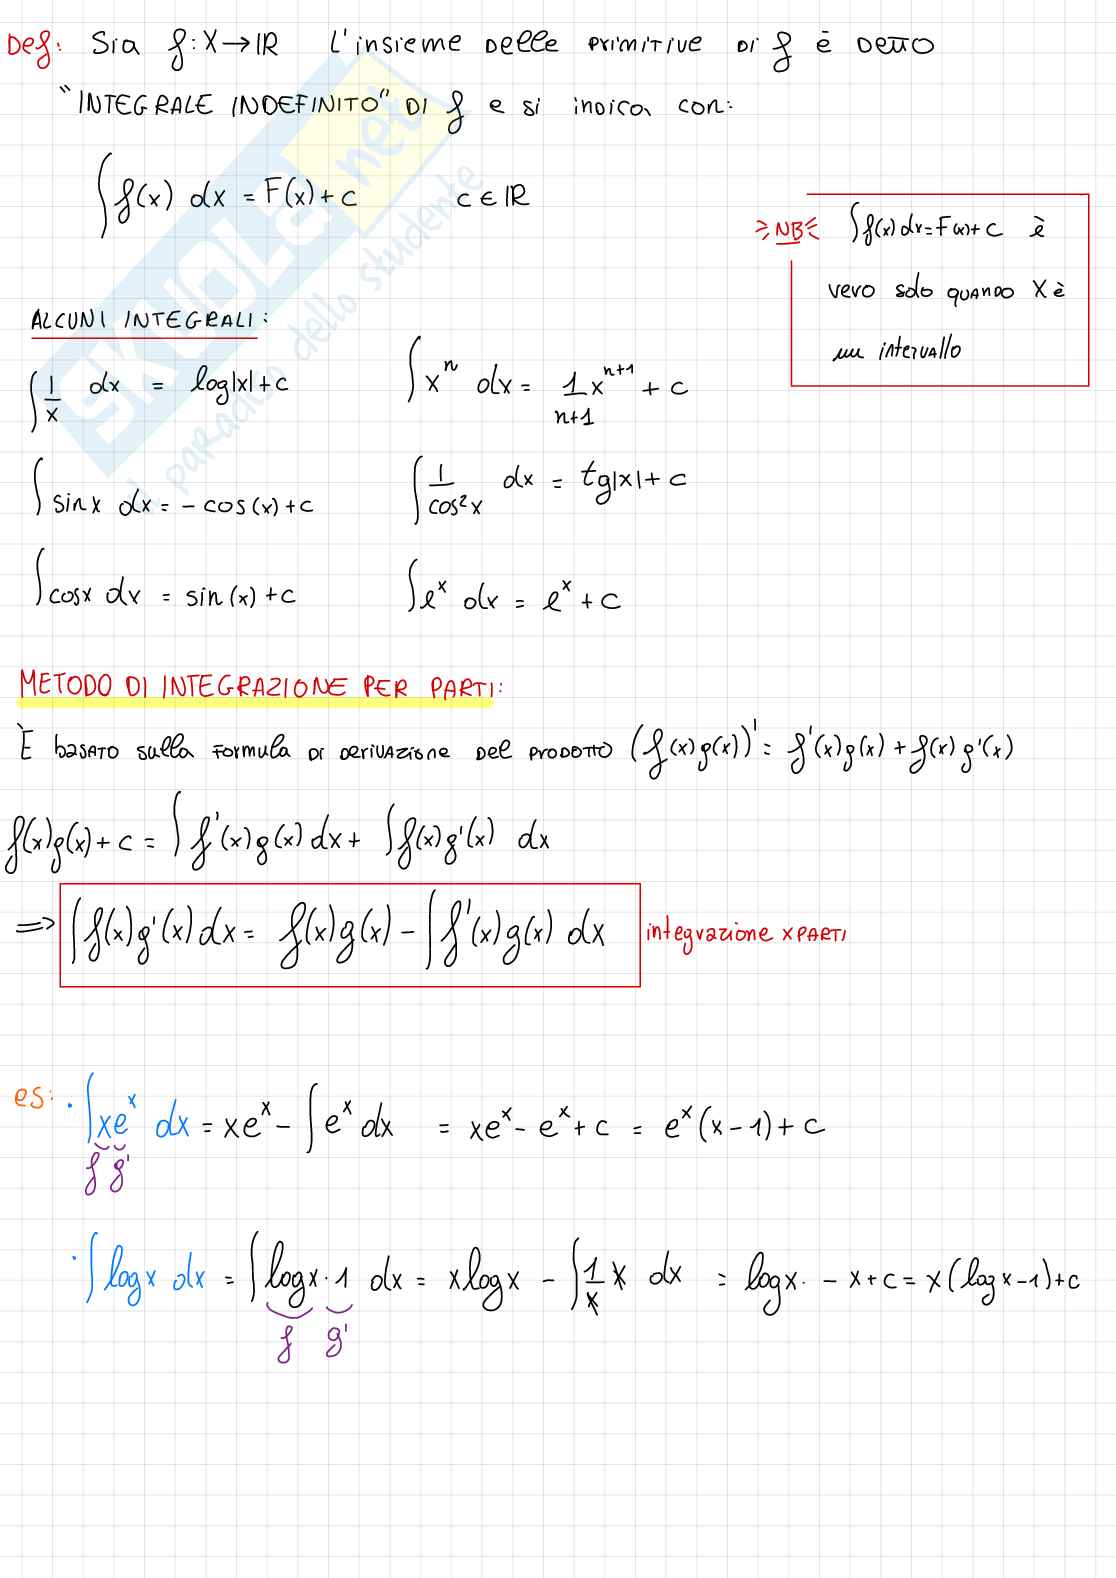 Def: Sia f: X→ℝ L'insieme delle primitive di f è detto
"INTEGRALE INDEFINITO" DI f e si indica con:
∫f(x) dx = F(x) + c c ∈ ℝ
NB ∫f(x) dx = F(x) + c è
vero solo quando X è
un intervallo
ALCUNI INTEGRALI:
∫1/x dx = log|x| + c ∫xⁿ dx = 1/(n+1) xⁿ⁺¹ + c
∫sinx dx = -cos(x) + c ∫1/cos²x dx = tg|x| + c
∫cosx dx = sin(x) + c ∫eˣ dx = eˣ + c
METODO DI INTEGRAZIONE PER PARTI:
È basato sulla formula di derivazione del prodotto (f(x)g(x))' = f'(x)g(x) + f(x)g'(x)
f(x)g(x) + c = ∫f'(x)g(x) dx + ∫f(x)g'(x) dx
⇒ ∫f(x)g'(x) dx = f(x)g(x) - ∫f'(x)g(x) dx integrazione x PARTI
es: · ∫xeˣ dx = xeˣ - ∫eˣ dx = xeˣ - eˣ + c = eˣ(x-1) + c
f g'
· ∫logx dx = ∫logx · 1 dx = xlogx - ∫1/x x dx = logx · - x + c = x(logx-1) + c
f g'
SKUOLA.net
il paradiso dello studente